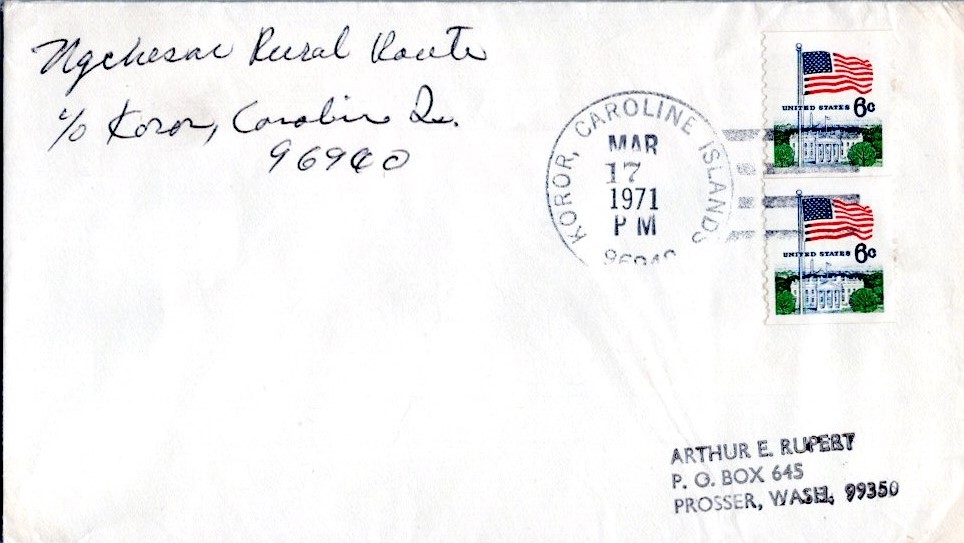 Ngchesar Rural Route
c/o Koror, Caroline Is.
96940
KOROR, CAROLINE ISLANDS
MAR
17
1971
PM
96940
UNITED STATES 6c
UNITED STATES 6c
ARTHUR E. RUPERT
P. O. BOX 645
PROSSER, WASH. 99350